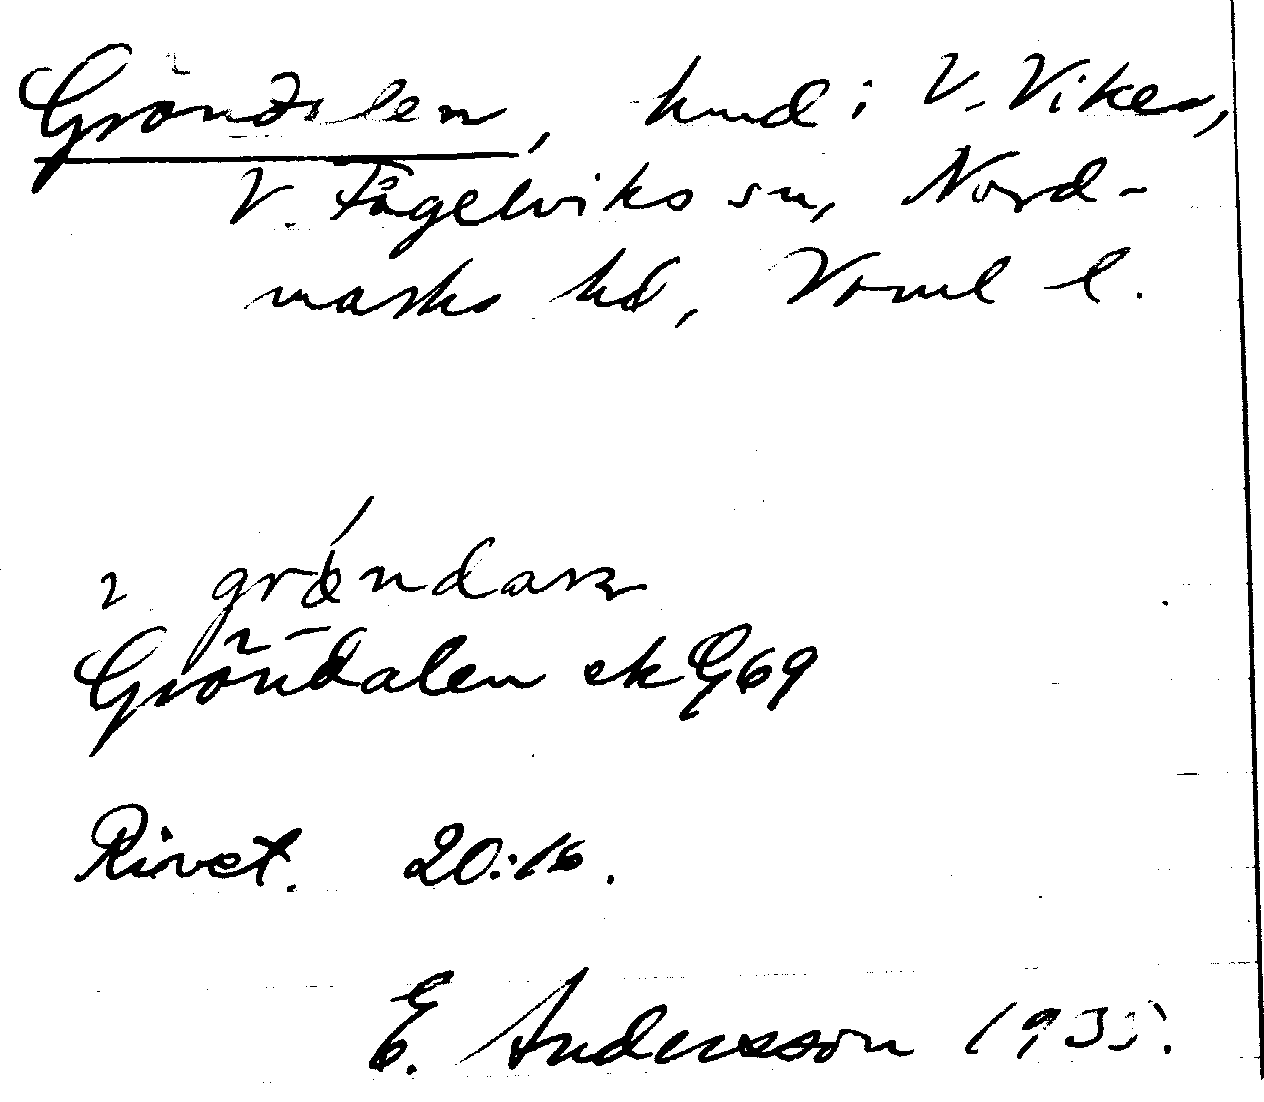 Gröndalen, hmd i V. Viker,
V. Fågelviks sn, Nord-
marks hd, Vrml l.
gröndarn
Gröndalen ek G69
Rivet. 20:16.
E. Andersson 193